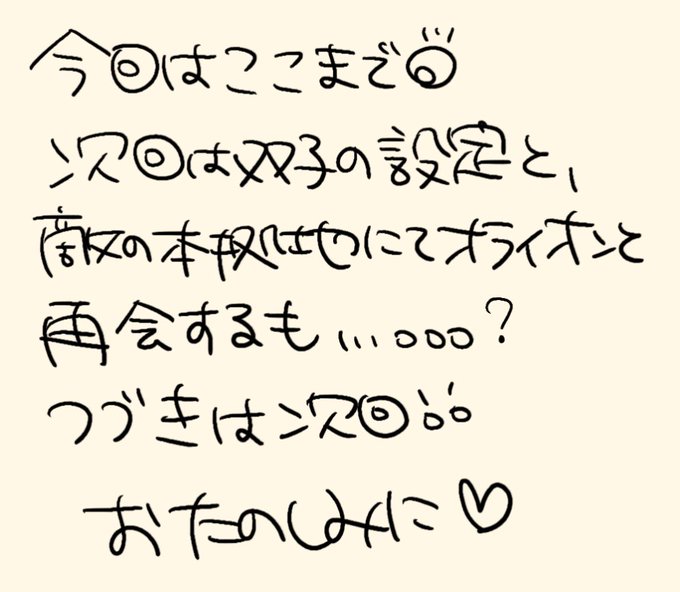 今回はここまで
次回は双子の設定と、
敵の本拠地にてオライオンと
再会するも...。。。?
つづきは次回
おたのしみに♡